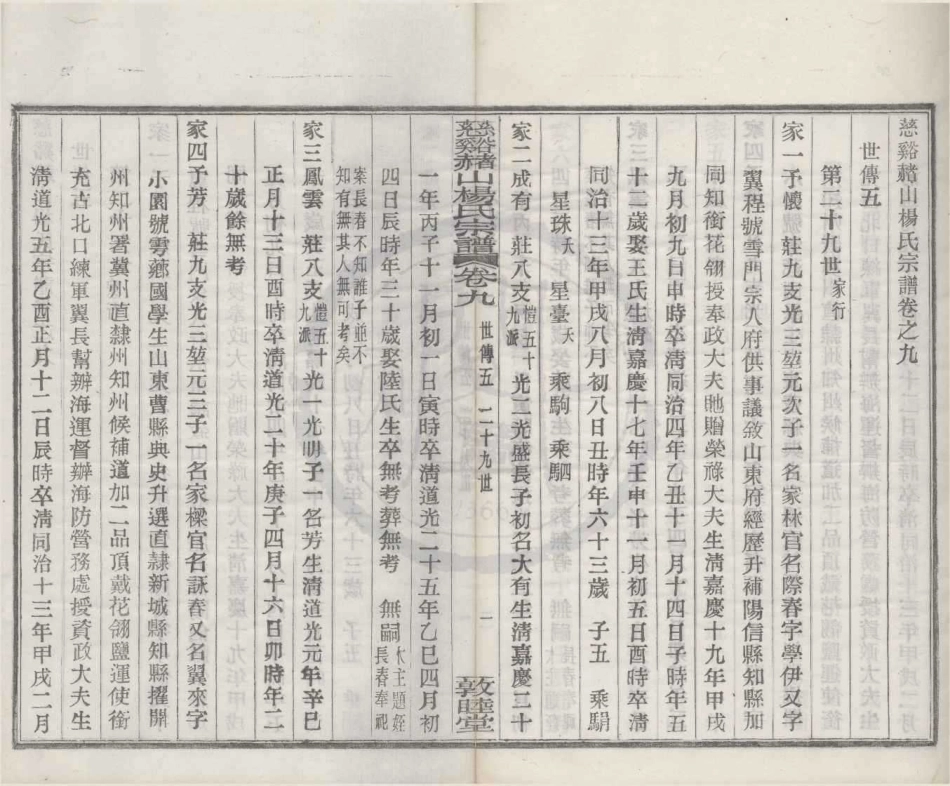 慈谿赭山楊氏宗譜卷之九
世傳五
第二十九世家行
家一予懷 莊九支光三堃元次子一名家林官名際春字學伊又字
翼程號雪門宗人府供事議敘山東府經歷升補陽信縣知縣加
同知銜花翎授奉政大夫貤贈榮祿大夫生淸嘉慶十九年甲戌
九月初九日申時卒淸同治四年乙丑十一月十四日子時年五
十二歲娶王氏生淸嘉慶十七年壬申十一月初五日酉時卒淸
同治十三年甲戌八月初八日丑時年六十三歲 子五 乘駽
星珠夭 星臺夭 乘駒 乘駟
家二成有 莊八支愷五十九派光二光盛長子初名大有生淸嘉慶二十
一年丙子十一月初一日寅時卒淸道光二十五年乙巳四月初
四日辰時年三十歲娶陸氏生卒無考葬無考 無嗣木主題姪長春奉祀
案長春不知誰子並不知有無其人無可考矣
慈谿赭山楊氏宗譜 卷九 世傳五 二十九世 一 敦睦堂
家三鳳雲 莊八支愷五十九派光一光明子一名芳生淸道光元年辛巳
正月十三日酉時卒淸道光二十年庚子四月十六日卯時年二
十歲餘無考
家四予芳 莊九支光三堃元三子一名家樑官名詠春又名翼來字
小園號雩薌國學生山東曹縣典史升選直隸新城縣知縣擢開
州知州署冀州直隸州知州候補道加二品頂戴花翎鹽運使銜
充古北口練軍翼長幫辦海運督辦海防營務處授資政大夫生
淸道光五年乙酉正月十二日辰時卒淸同治十三年甲戌二月